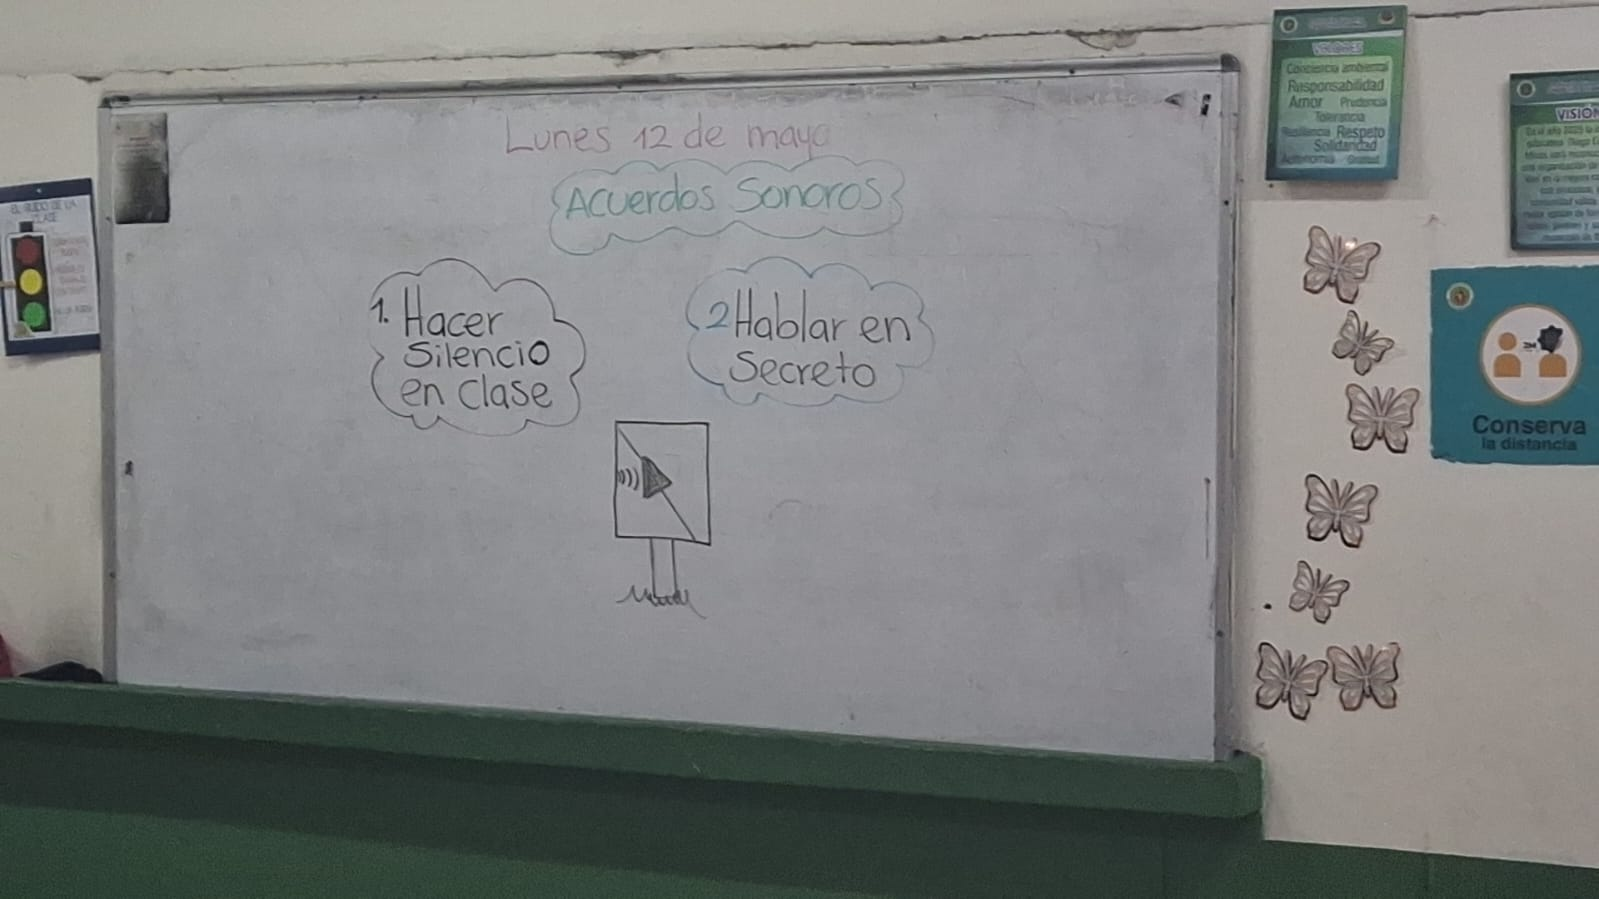 Lunes 12 de mayo
Acuerdos Sonoros
1. Hacer
Silencio
en clase
2 Hablar en
Secreto
EL RUIDO DE LA
CLASE
VALORES
Conciencia ambiental
Responsabilidad
Amor Prudencia
Tolerancia
Resiliencia Respeto
Solidaridad
Autonomía
VISIÓN
2M
Conserva
la distancia